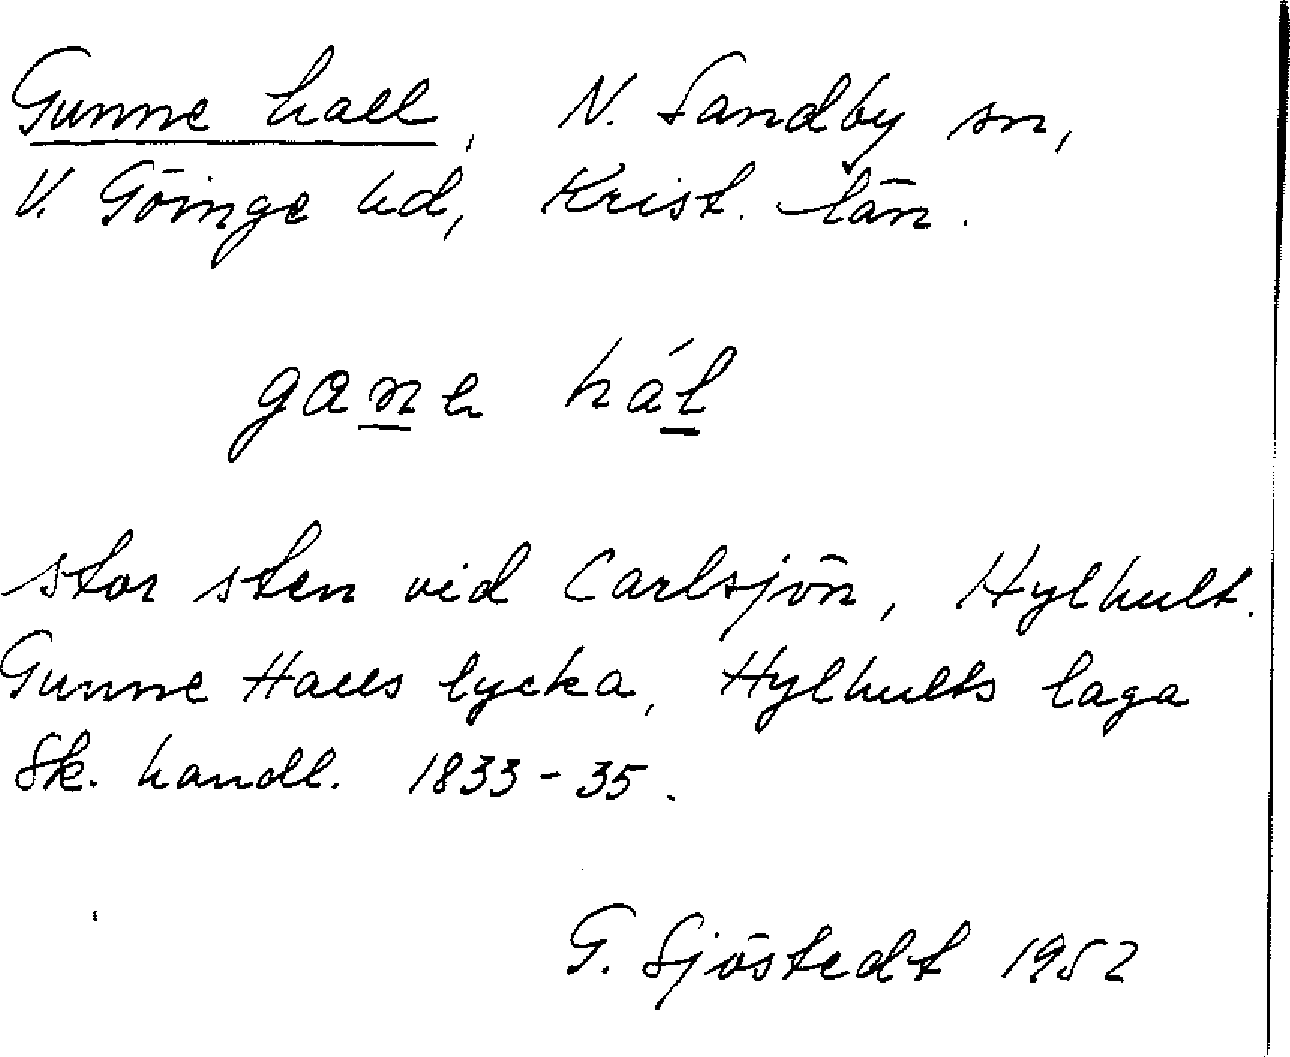 Gunne hall, N. Sandby sn,
V. Göinge hd, Krist. län.
gane hál
stor sten vid Carlsjön, Hylhult.
Gunne Halls lycka, Hylhults laga
Sk. handl. 1833-35.
G. Sjöstedt 1952